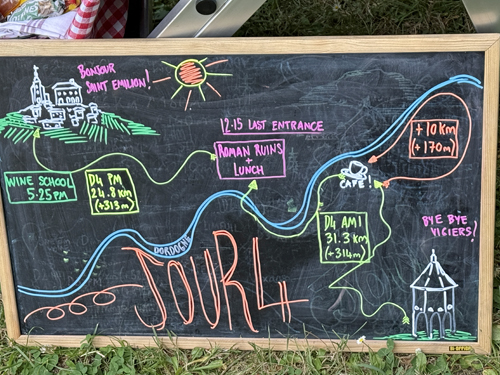 BONJOUR
SAINT EMILION!
12-15 LAST ENTRANCE
ROMAN RUINS
+
LUNCH
+10KM
(+170m)
WINE SCHOOL
5.25PM
D4 PM
24.8 KM
(+313m)
CAFE!
D4 AM1
31.3 KM
(+314m)
BYE BYE
VIGIERS!
DORDOGNE
JOUR 4